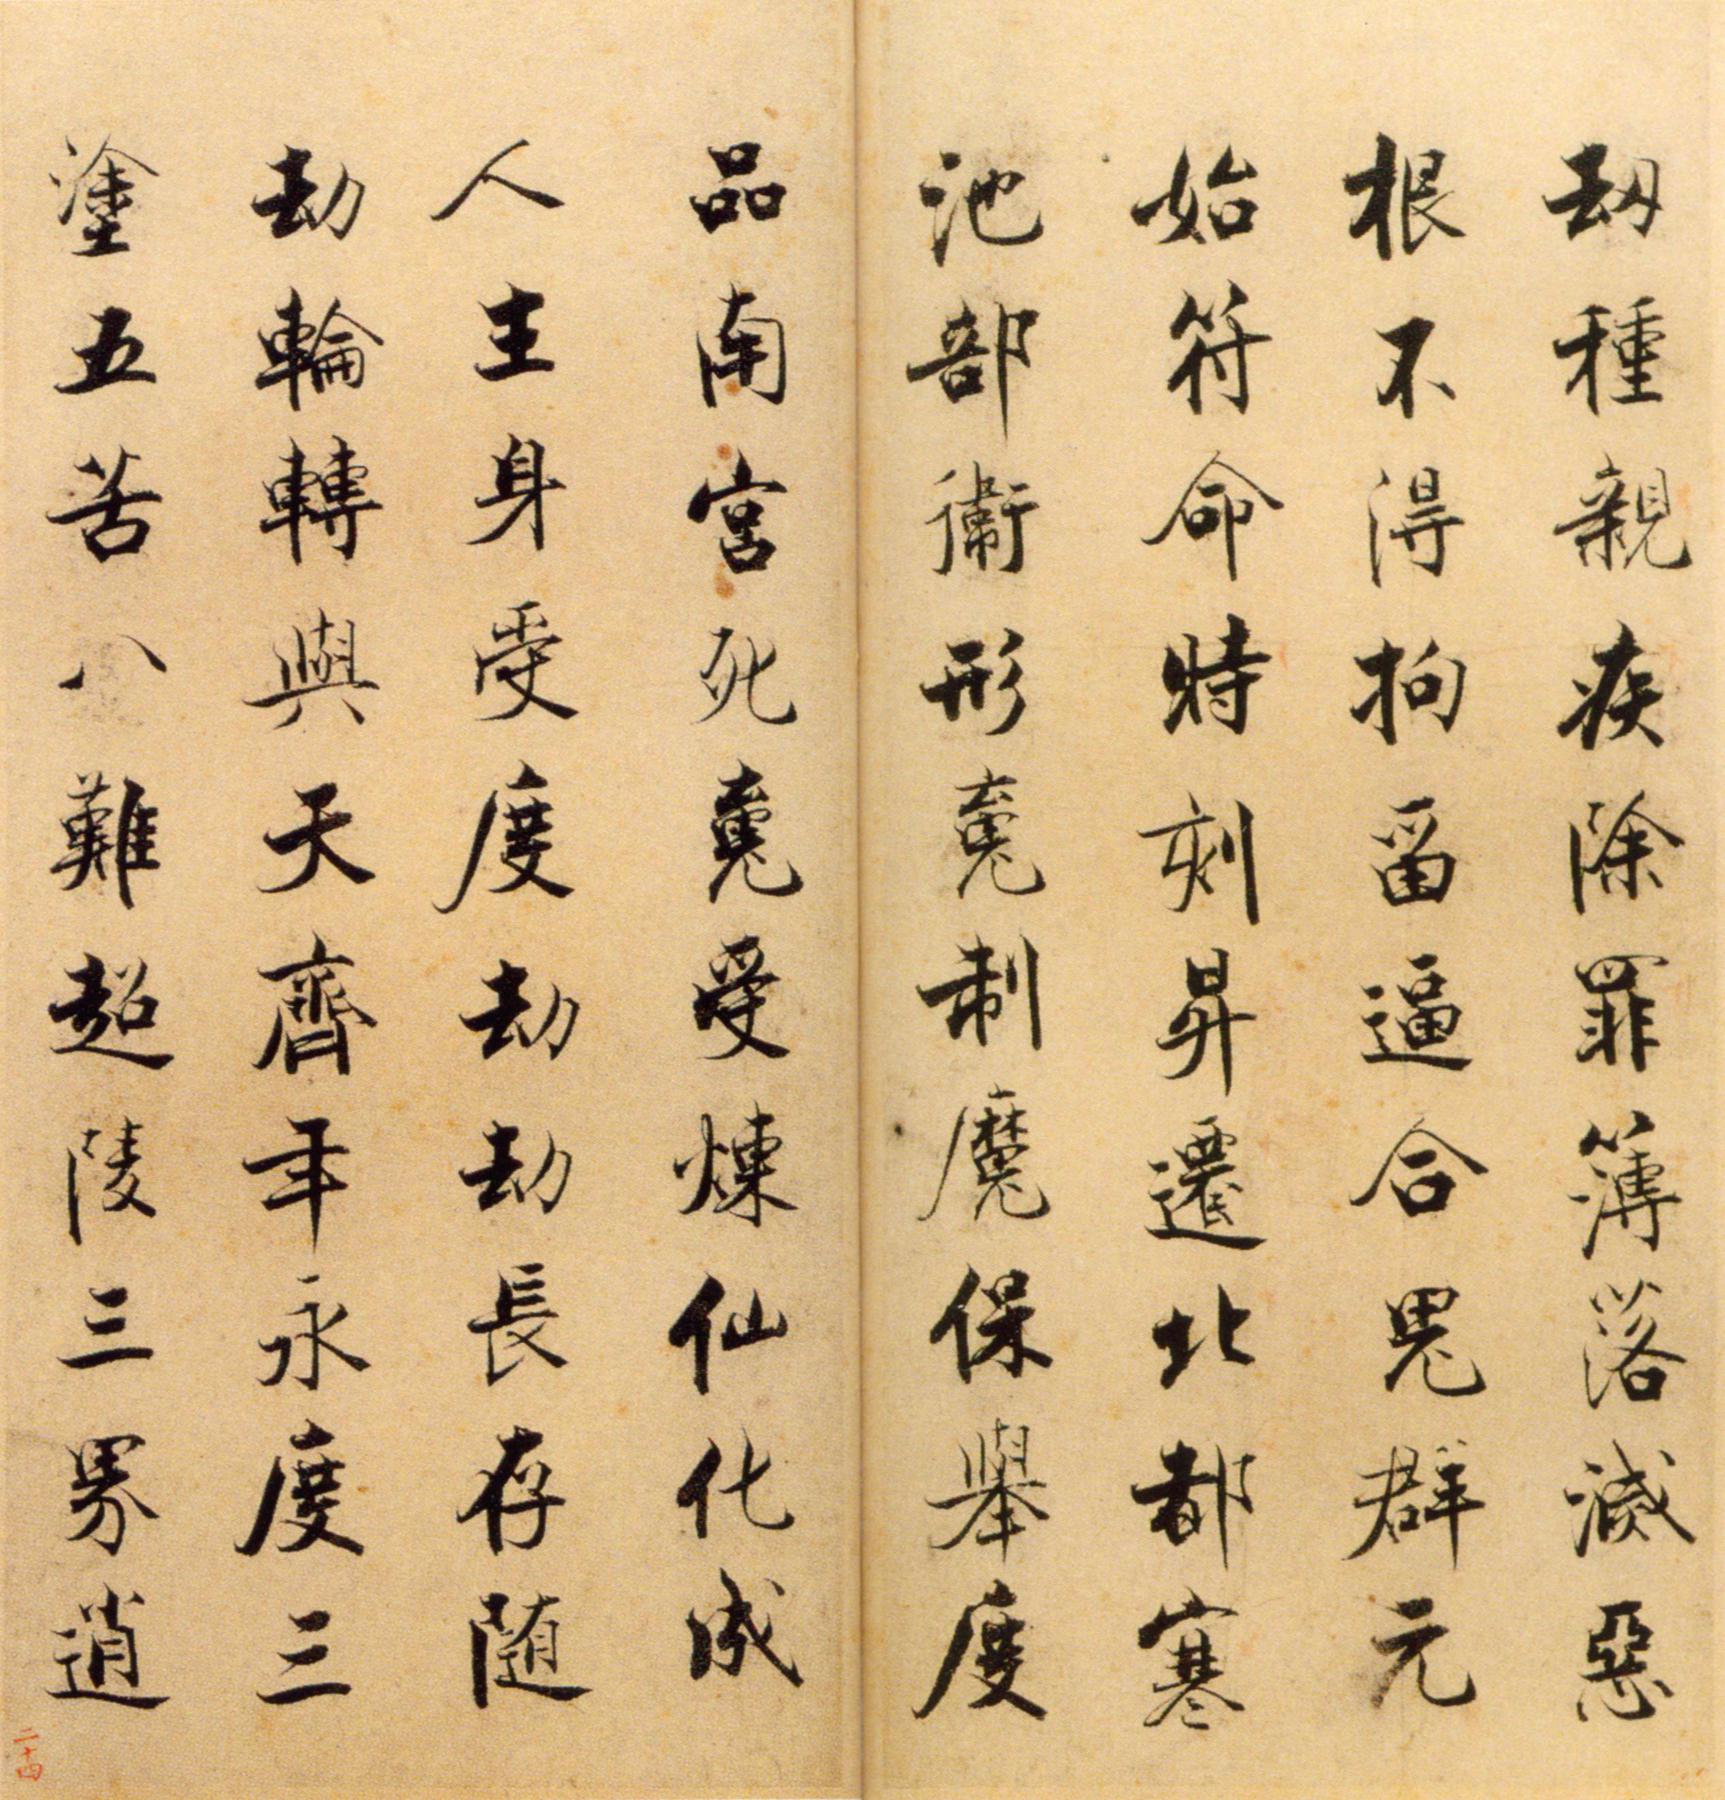 刼種親疾除罪簿落滅惡
根不得拘留逼合鬼群元
始符命時刻昇遷北都寒
池部衛形䰟制魔保舉度
品南宮死䰟受煉仙化成
人生身受度劫劫長存随
劫輪轉與天齊年永度三
塗五苦八難超陵三界逍
二十四